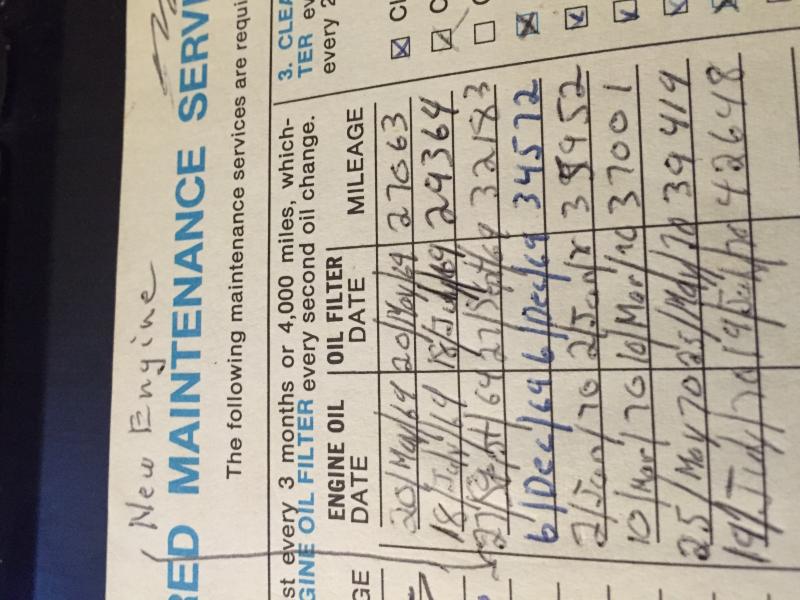 New Engine
RED MAINTENANCE SERV
The following maintenance services are requi
st every 3 months or 4,000 miles, which-
GINE OIL FILTER every second oil change.
3. CLEA
TER ev
every 2
GE
ENGINE OIL DATE OIL FILTER DATE MILEAGE
20/May/69 20/May/69 27063
18/July/69 18/July/69 29364
27/Sept/69 27/Sept/69 32183
6/Dec/69 6/Dec/69 34572
2/Jan/70 2/Jan/
10/Mar/70 10/Mar/70 37001
25/May70 25/May/70 39419
19/July/70 19/July/70 42648